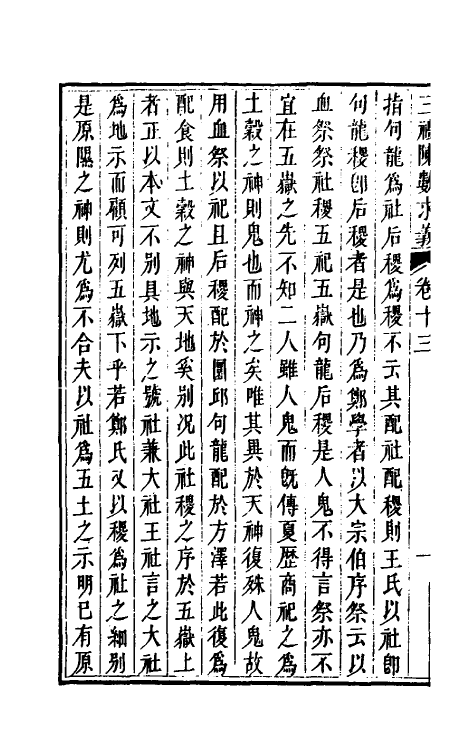 三禮陳數求義 卷十三 一
指句龍爲社后稷爲稷不云其配社配稷則王氏以社卽
句龍稷卽后稷者是也乃爲鄭學者以大宗伯序祭云以
血祭祭社稷五祀五嶽句龍后稷是人鬼不得言祭亦不
宜在五嶽之先不知二人雖人鬼而旣傳夏歷商祀之爲
土穀之神則鬼也而神之矣唯其異於天神復殊人鬼故
用血祭以祀且后稷配於圜邱句龍配於方澤若此復爲
配食則土穀之神與天地奚别况此社稷之序於五嶽上
者正以本文不别具地示之號社兼大社王社言之大社
爲地示而顧可列五嶽下乎若鄭氏又以稷爲社之細别
是原隰之神則尤爲不合夫以社爲五土之示明已有原